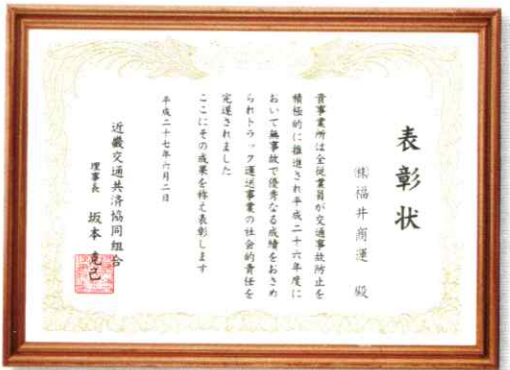 表彰状
㈱福井商運 殿
貴事業所は全従業員が交通事故防止を
積極的に推進され平成二十六年度に
おいて無事故で優秀なる成績をおさめ
られトラック運送事業の社会的責任を
完遂されました
ここにその成果を称え表彰します
平成二十七年六月二日
近畿交通共済協同組合
理事長 坂本克己